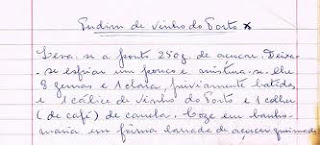 Pudim de vinho do Porto x
Leva-se a ponto 250g. de açucar. Deixa-
-se esfriar um pouco e mistura-se-lhe
8 gemas e 1 clara, previamente batidas,
e 1 cálice de vinho do Porto e 1 colher
(de café) de canela. Coze em banho
maria em forma barrada de açucar queimado